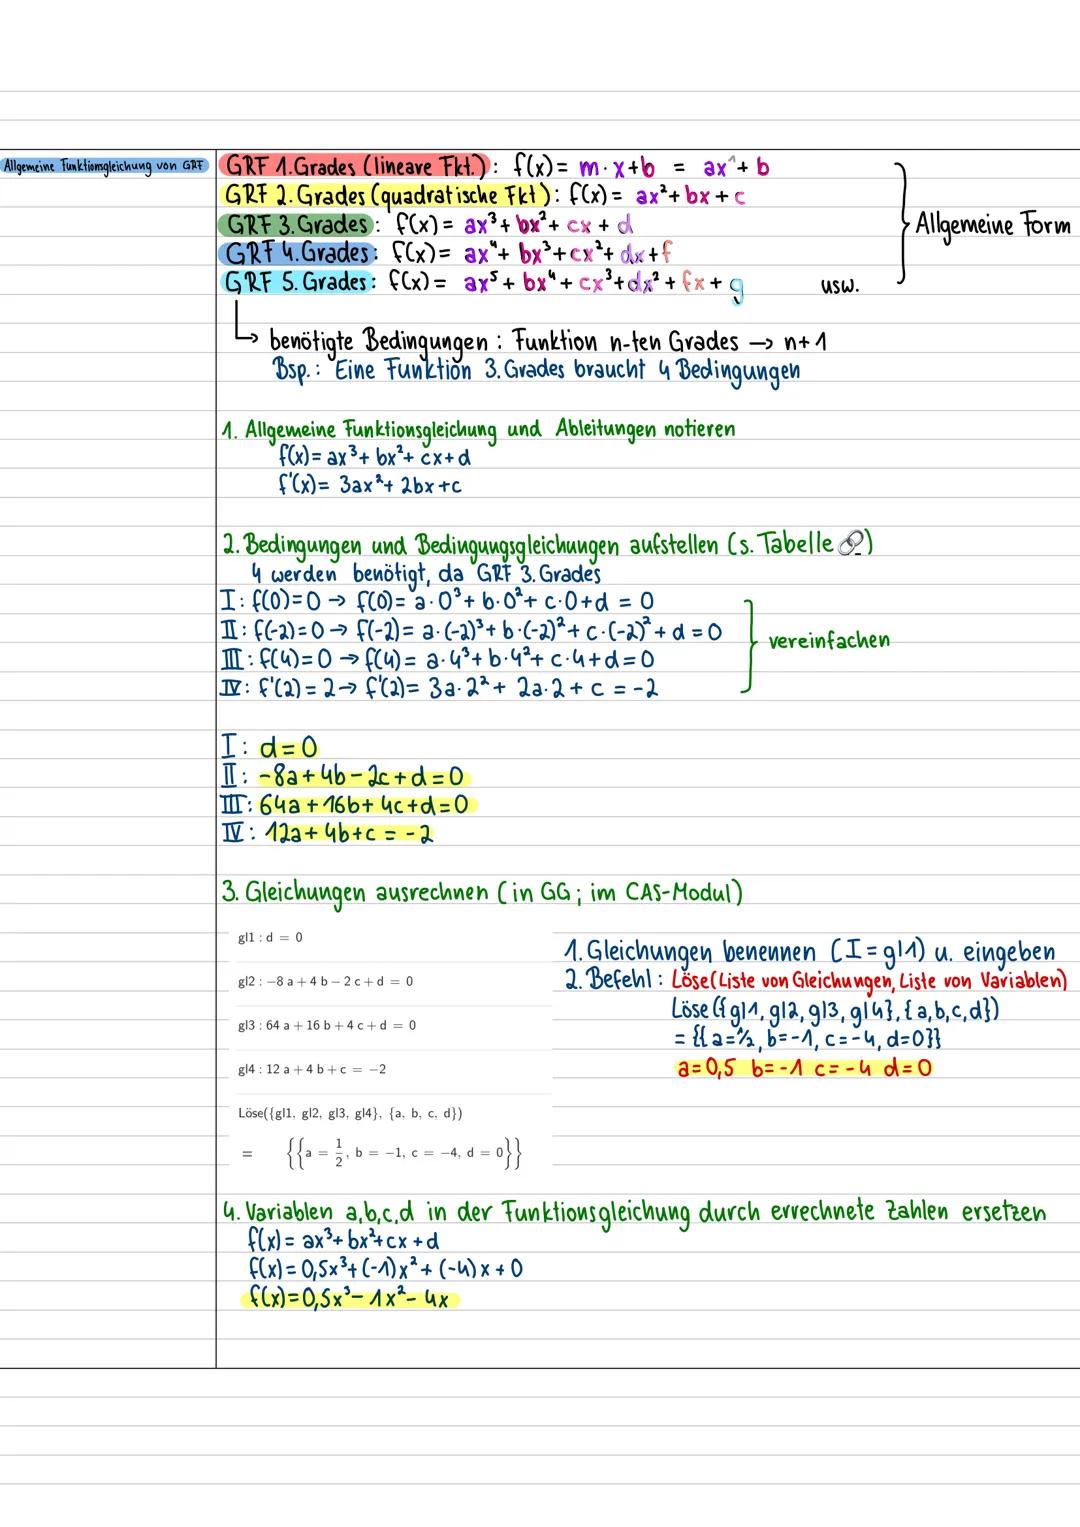 Allgemeine Funktionsgleichung von GRF
GRF 1.Grades (lineare Fkt.): f(x) = m·x+b = ax¹+b
GRF 2.Grades (quadratische Fkt): f(x) = ax²+bx+c
GRF 3.Grades: f(x) = ax³+bx²+cx+d
GRF 4.Grades: f(x) = ax⁴+bx³+cx²+dx+f
GRF 5.Grades: f(x) = ax⁵+bx⁴+cx³+dx²+fx+g usw.
Allgemeine Form
↳ benötigte Bedingungen: Funktion n-ten Grades → n+1
Bsp.: Eine Funktion 3.Grades braucht 4 Bedingungen
1. Allgemeine Funktionsgleichung und Ableitungen notieren
f(x) = ax³+bx²+cx+d
f'(x) = 3ax²+2bx+c
2. Bedingungen und Bedingungsgleichungen aufstellen (s. Tabelle)
4 werden benötigt, da GRF 3.Grades
I: f(0)=0 → f(0) = a·0³+b·0²+c·0+d = 0
II: f(-2)=0 → f(-2) = a·(-2)³+b·(-2)²+c·(-2)²+d = 0
III: f(4)=0 → f(4) = a·4³+b·4²+c·4+d = 0
IV: f'(2)=2 → f'(2) = 3a·2²+2a·2+c = -2
vereinfachen
I: d=0
II: -8a+4b-2c+d=0
III: 64a+16b+4c+d=0
IV: 12a+4b+c = -2
3. Gleichungen ausrechnen (in GG; im CAS-Modul)
gl1 : d = 0
gl2 : −8 a + 4 b − 2 c + d = 0
gl3 : 64 a + 16 b + 4 c + d = 0
gl4 : 12 a + 4 b + c = −2
Löse({gl1, gl2, gl3, gl4}, {a, b, c, d})
= {{a = 1/2, b = −1, c = −4, d = 0}}
1. Gleichungen benennen (I=gl1) u. eingeben
2. Befehl: Löse(Liste von Gleichungen, Liste von Variablen)
Löse({gl1, gl2, gl3, gl4}, {a,b,c,d})
= {{a=½, b=-1, c=-4, d=0}}
a=0,5 b=-1 c=-4 d=0
4. Variablen a,b,c,d in der Funktionsgleichung durch errechnete Zahlen ersetzen
f(x) = ax³+bx²+cx+d
f(x) = 0,5x³+(-1)x²+(-4)x+0
f(x) = 0,5x³-1x²-4x